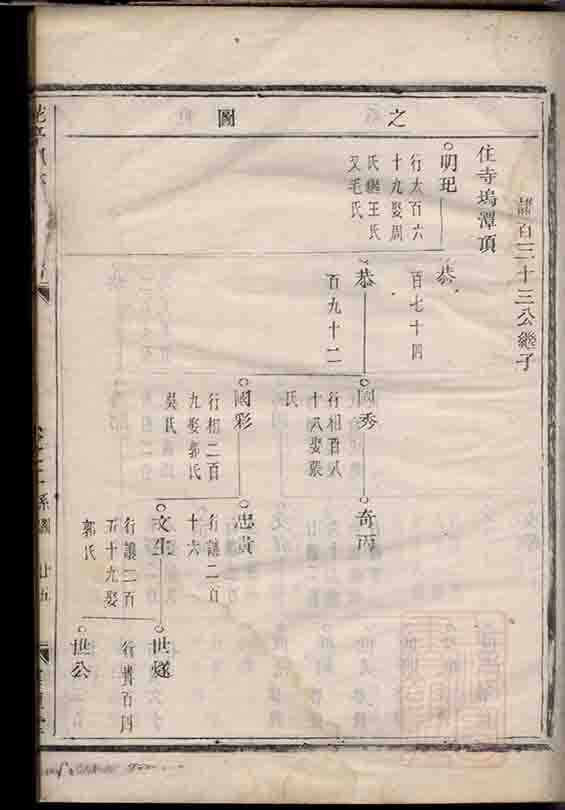 之圖
諸百三十三公繼子
住寺塢潭頂
明玘
行太百六
十九娶周
氏繼王氏
又毛氏
恭
百七十四
恭
百九十二
國秀
行相百八
十八娶張
氏
國彩
行相二百
九娶郭氏
吳氏
奇丙
忠貴
行讓二百
十六
文生
行讓二百
五十九娶
郭氏
世燧
行貴百四
世公